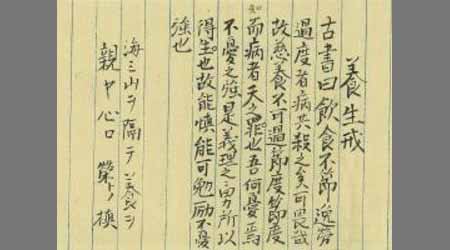 養生戒
古書曰飲食不節逸労
過度者病共殺之矣可畏哉
故慈養不可過節度節度
知
而病者天之罪也吾何憂焉
不憂之強是義理之勇所以
得生也故能慎能可勉励不憂
強也
海ミ山ヲ隔テ
親ヤ心口